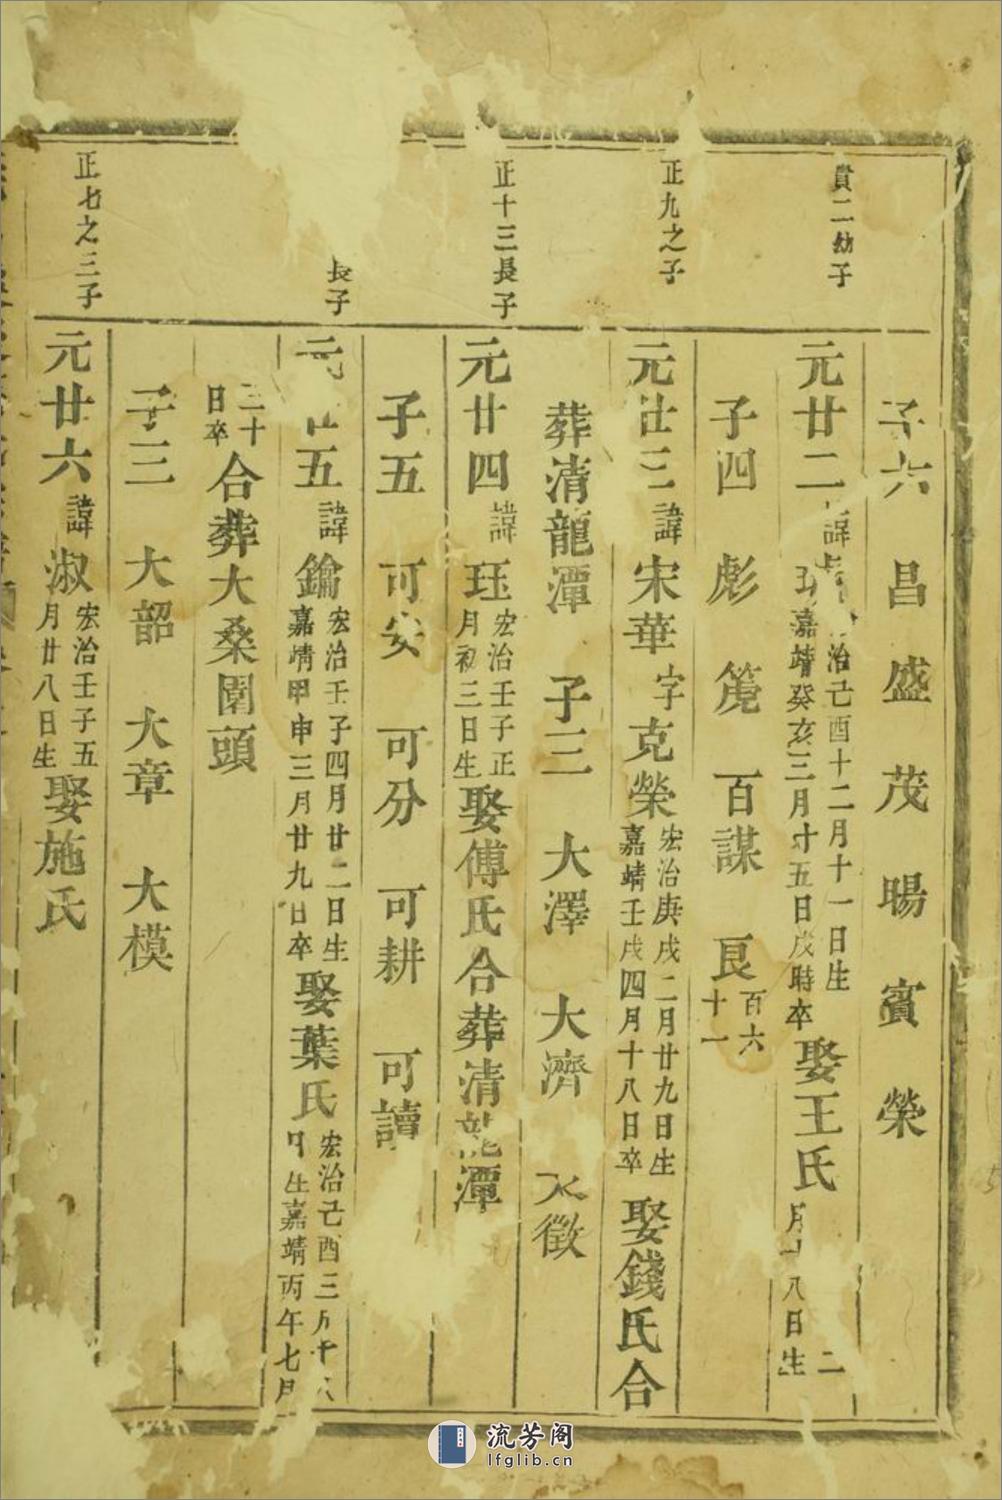 子六 昌 盛 茂 暘 賓 榮
貴二幼子
元廿二諱
治己酉十二月十一日生
嘉靖癸亥三月廿五日戌時卒
娶王氏
二
月 八日生
子四 彪 箎 百謀 艮 百六
十一
正九之子
元廿三諱宋華字克榮
宏治庚戌二月廿九日生
嘉靖壬戌四月十八日卒
娶錢氏合
葬清龍潭 子三 大澤 大濟 大徵
正十三長子
元廿四諱珏
宏治壬子正
月初三日生
娶傅氏合葬清龍潭
子五 可安 可分 可耕 可讀
長子
元廿五諱鑰
宏治壬子四月廿二日生
嘉靖甲申三月廿九日卒
娶葉氏
宏治己酉三月十八
日生嘉靖丙午七月
二十
日卒
合葬大桑園頭
子三 大韶 大章 大模
正七之三子
元廿六諱淑
宏治壬子五
月廿八日生
娶施氏
流芳阁
lfglib.cn